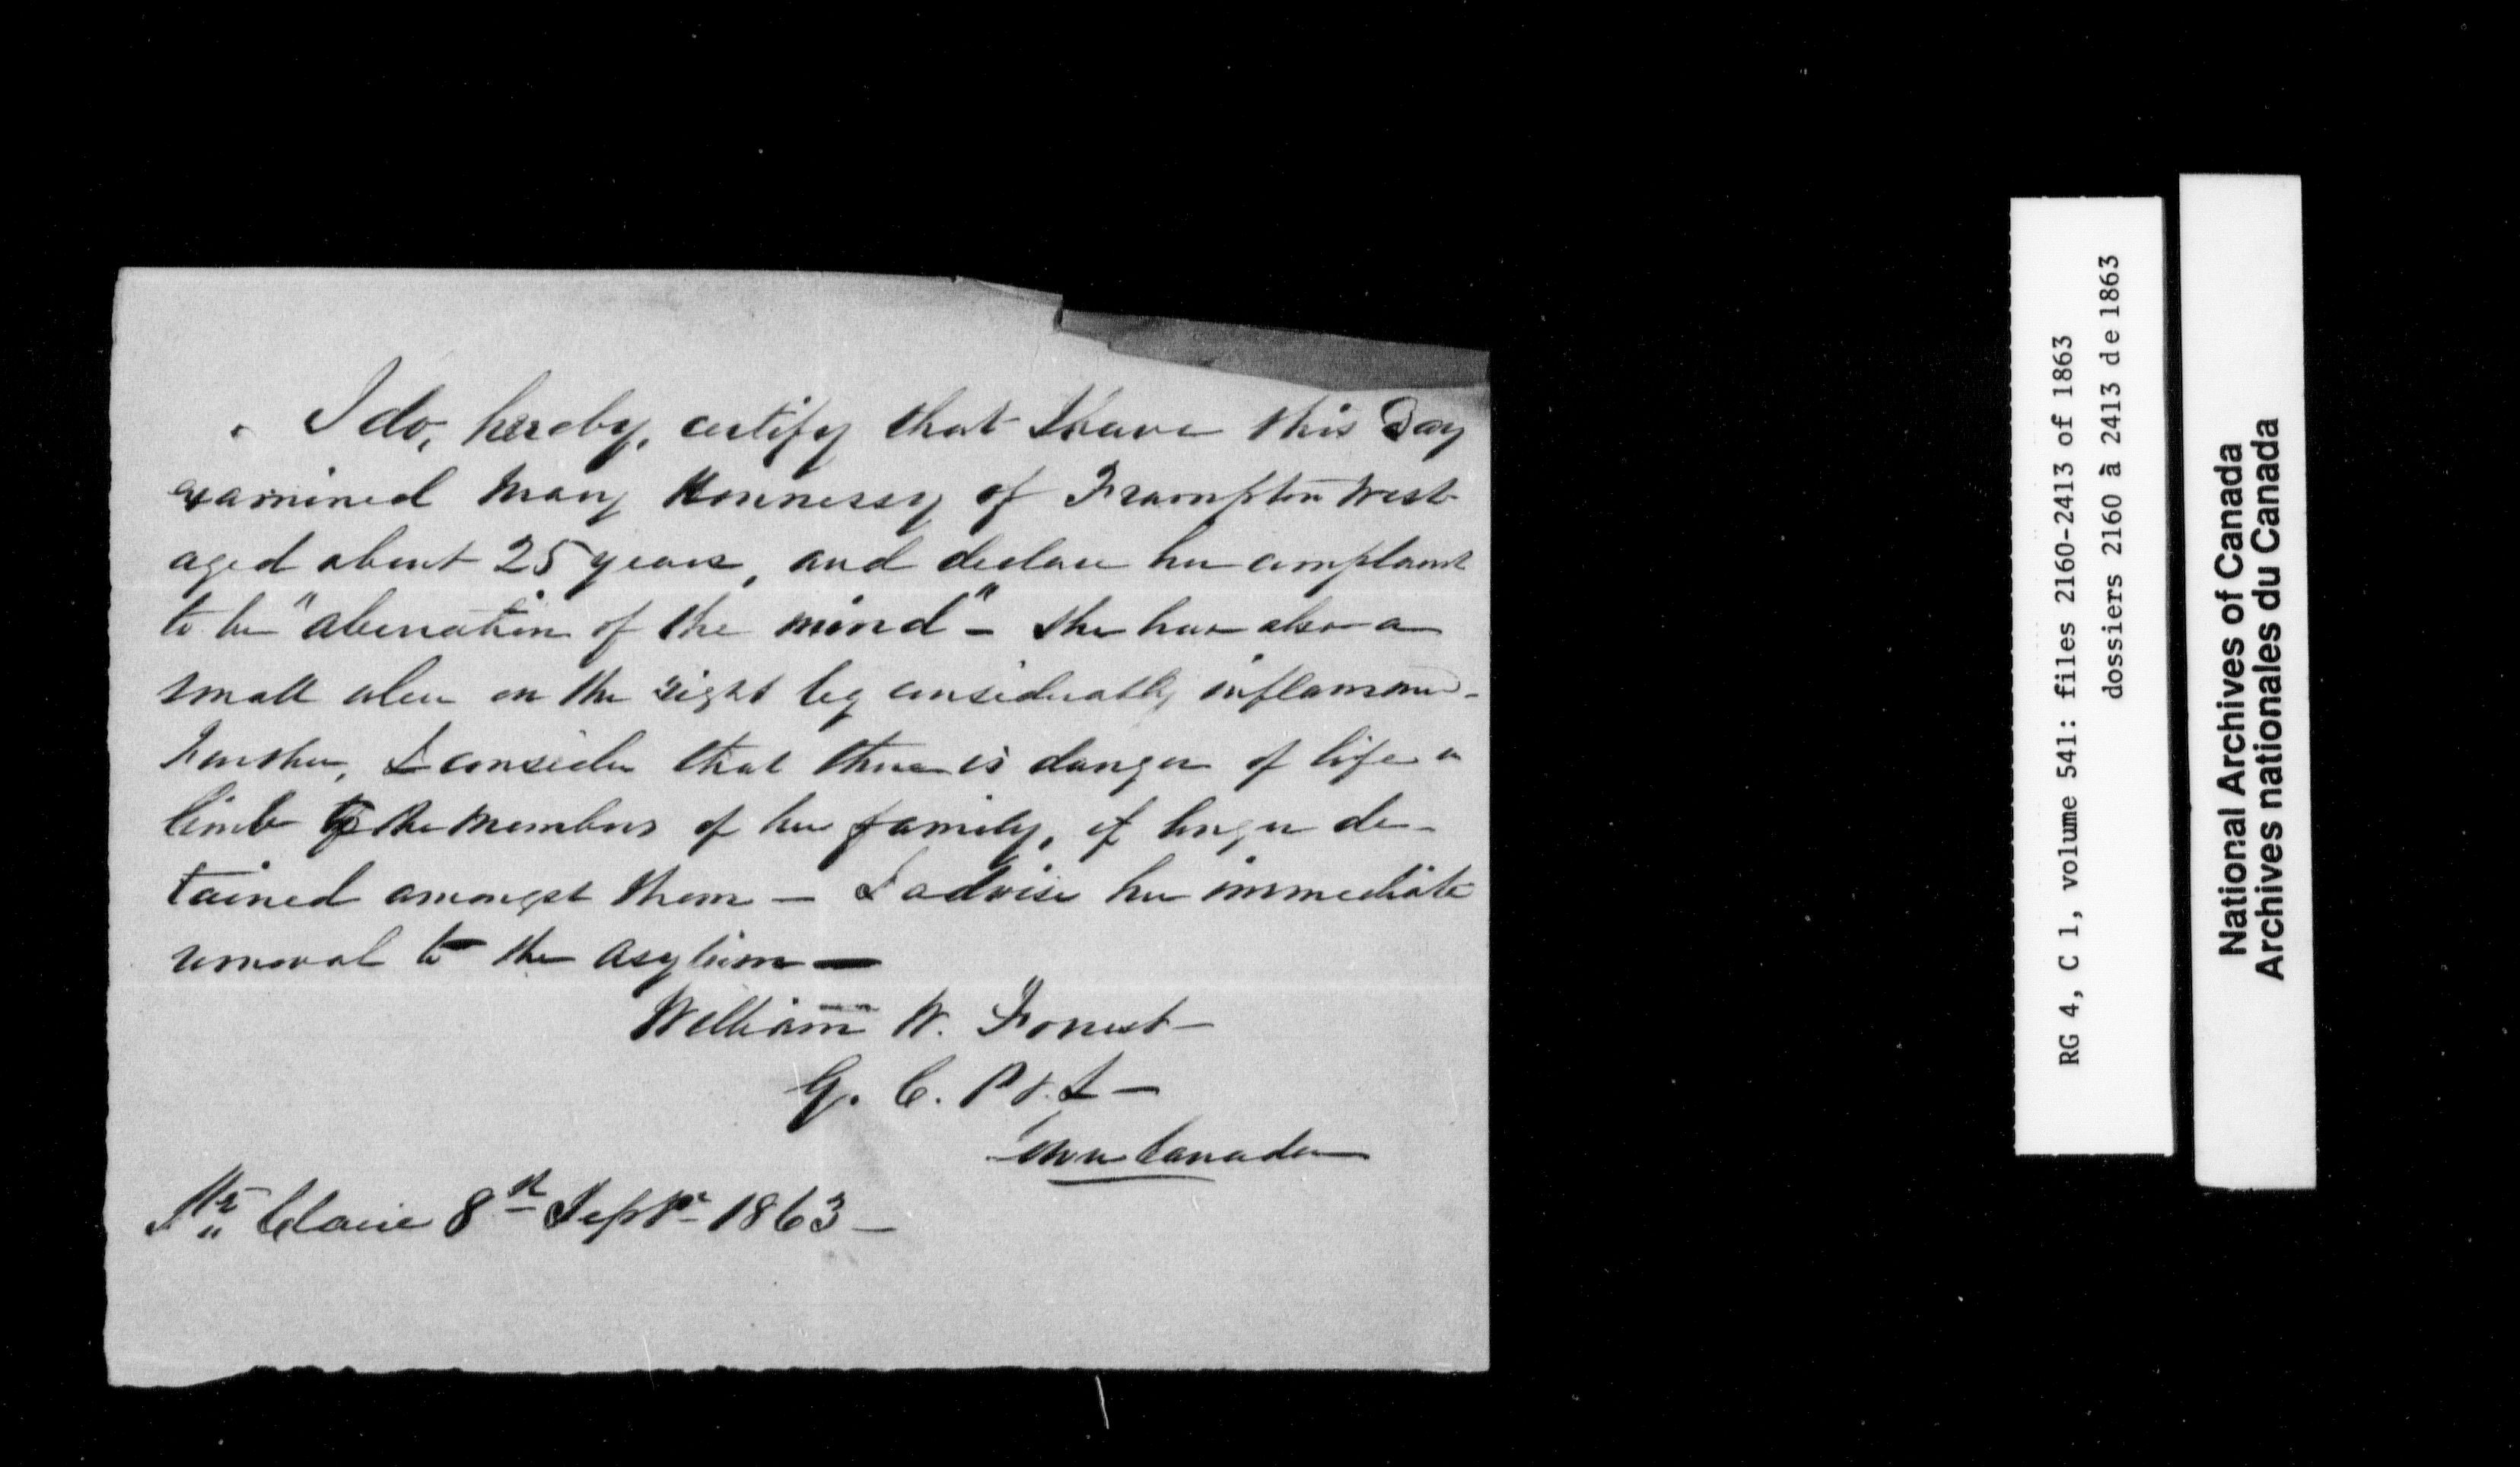 I do, hereby, certify that I have this Day
examined Mary Hennessy of Frampton West
aged about 25 years, and declare her complaint
to be "aberration of the mind" - she has also a
small ulcer on the right leg considerably inflammed -
Further, I consider that there is danger of life or
limb to the members of her family, if longer de-
tained amongst them — I advise her immediate
removal to the asylum —
William W. Forrest —
G. C. P & S —
Lower Canada
Ste Claire 8th Septr 1863 —
RG 4, C 1, volume 541: files 2160-2413 of 1863
dossiers 2160 à 2413 de 1863
National Archives of Canada
Archives nationales du Canada